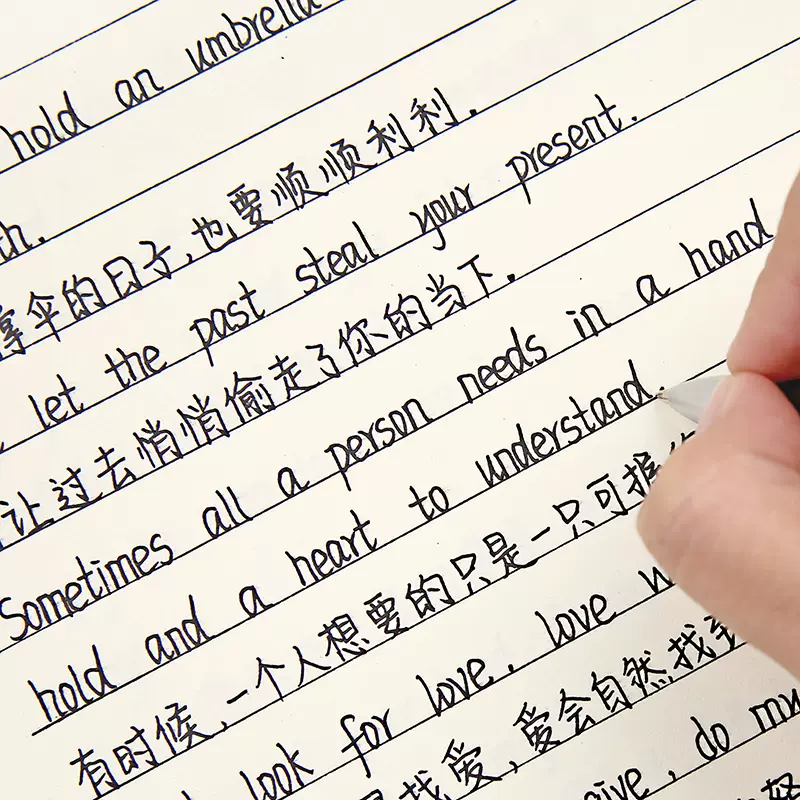 hold an umbrella
th.
撑伞的日子,也要顺顺利利.
let the past steal your present.
让过去悄悄偷走了你的当下.
Sometimes all a person needs in a hand
hold and a heart to understand.
有时候,一个人想要的只是一只可握
look for love, love
找爱,爱会自然找到
give, do